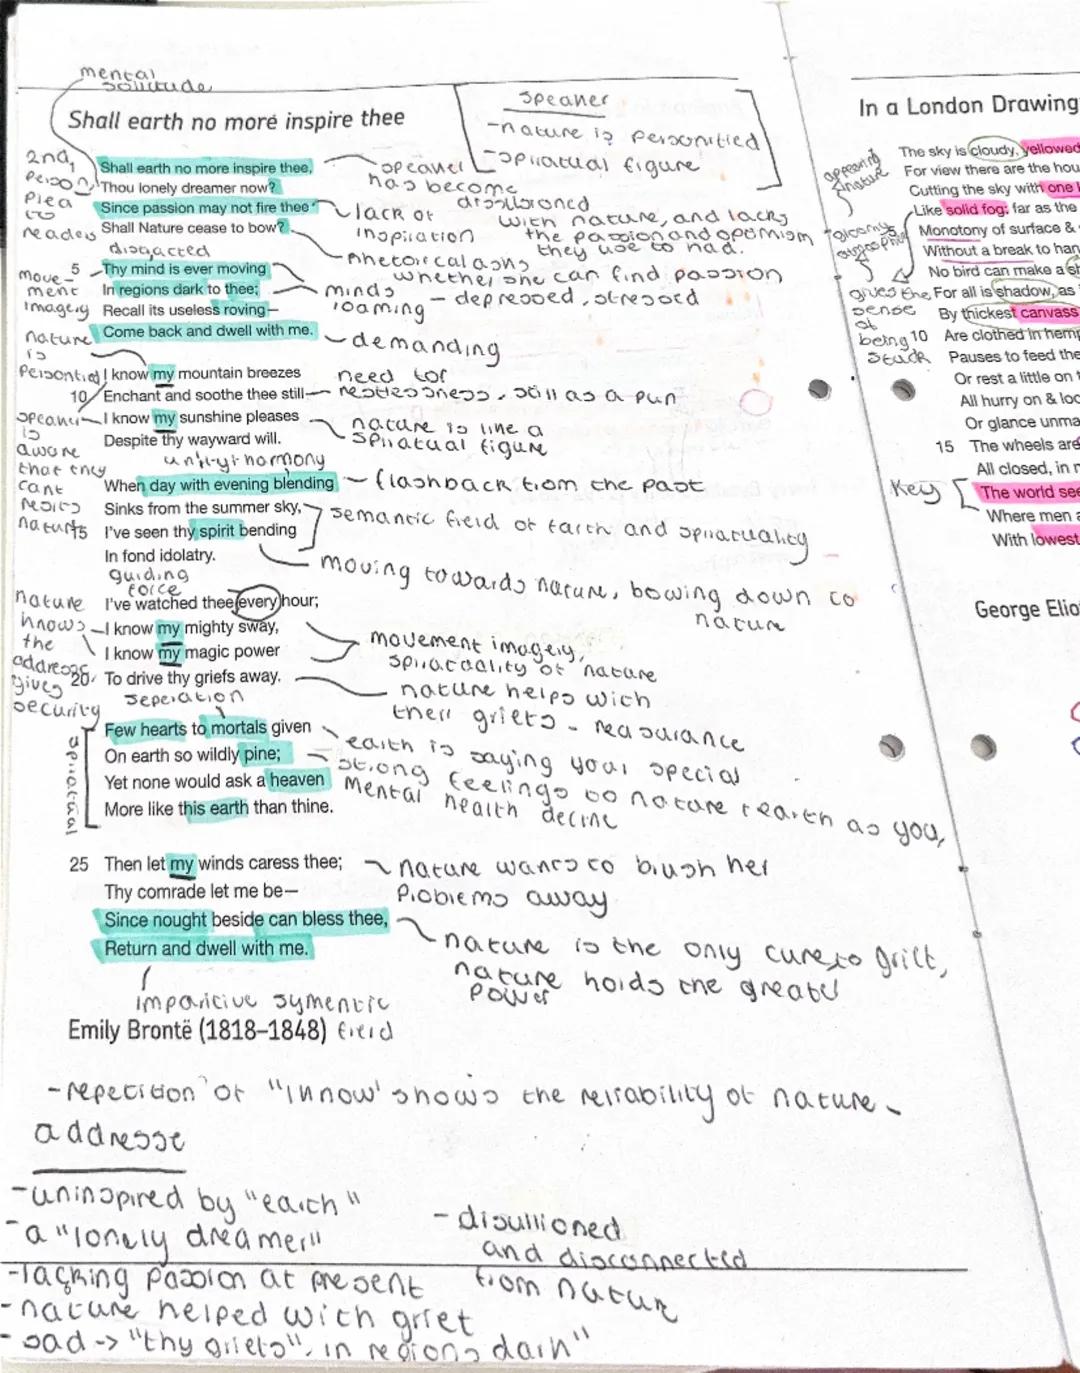 mental
solitude
Shall earth no more inspire thee
speaker
-nature is personified
-spiratual figure
2nd
person
plea
to
reader
Shall earth no more inspire thee,
Thou lonely dreamer now?
Since passion may not fire thee
Shall Nature cease to bow?
speaker
has become
disillusioned
with nature, and lacks
the passion and optimism
they use to had.
lack of
inspiration
rhetorical asks
whether she can find passion
- depressed, stressed
disgacted
move-
ment
imagery
5 Thy mind is ever moving
In regions dark to thee;
Recall its useless roving—
Come back and dwell with me.
minds
roaming
demanding
nature
is
personfied
I know my mountain breezes
10 Enchant and soothe thee still—
I know my sunshine pleases
Despite thy wayward will.
need for
restlessness, still as a pun
nature is like a
spiratual figure
speaker
is
aware
that they
cant
resits
nature
unity+harmony
When day with evening blending
Sinks from the summer sky,
15 I've seen thy spirit bending
In fond idolatry.
flashback from the past
semantic field of earth and spirituality
moving towards nature, bowing down to
nature
guiding
force
nature
knows
the
addresse
gives
security
I've watched thee every hour;
I know my mighty sway,
I know my magic power
20 To drive thy griefs away.
movement imagery,
spiratuality of nature
nature helps with
their griefs - reasurance
seperation
spiritual
Few hearts to mortals given
On earth so wildly pine;
Yet none would ask a heaven
More like this earth than thine.
earth is saying your special
strong feelings to nature + earth as you,
Mental health decine
25 Then let my winds caress thee;
Thy comrade let me be—
Since nought beside can bless thee,
Return and dwell with me.
nature wants to brush her
problems away
nature is the only cure to grift,
nature holds the greater
power
imparitive symentic
field
Emily Brontë (1818–1848)
-repetition of "I know" shows the reliability of nature
addresse
-uninspired by "earth"
-a "lonely dreamer"
-lacking passion at present
-nature helped with grief
- sad -> "thy griefs", in regions dark"
- disullioned
and disconnected
from nature
In a London Drawing
appearing
nature
gloomy
atmosphere
gives the
sense
of
being
stuck
The sky is cloudy, yellowed
For view there are the hou
Cutting the sky with one l
Like solid fog: far as the
5 Monotony of surface &
Without a break to han
No bird can make a sh
For all is shadow, as
By thickest canvass
10 Are clothed in hemp
Pauses to feed the
Or rest a little on t
All hurry on & loo
Or glance unma
15 The wheels are
All closed, in m
Key
The world see
Where men a
With lowest
George Elio